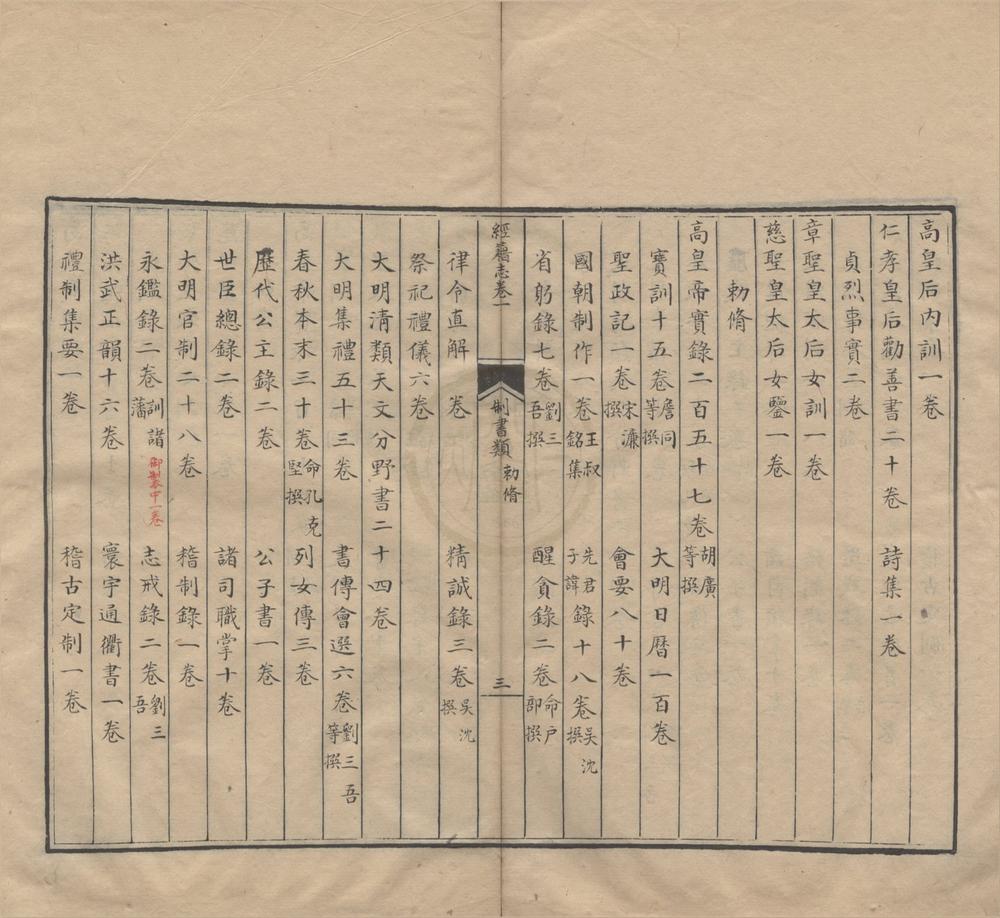 高皇后内訓一卷
仁孝皇后勸善書二十卷　詩集一卷
貞烈事實二卷
章聖皇太后女訓一卷
慈聖皇太后女鑒一卷
勅脩
高皇帝實錄二百五十七卷胡廣等撰
寶訓十五卷詹同等撰　大明日曆一百卷
聖政記一卷宋濂撰　會要八十卷
國朝制作一卷王叔銘集　先君子諱錄十八卷吳沈撰
省躬錄七卷劉三吾撰　醒貪錄二卷命户部撰
經籍志卷一　制書類　勅脩　三
律令直解　卷　精誠錄三卷吳沈撰
祭祀禮儀六卷
大明清類天文分野書二十四卷
大明集禮五十三卷　書傳會選六卷劉三吾等撰
春秋本末三十卷命孔克堅撰　列女傳三卷
歷代公主錄二卷　公子書一卷
世臣總錄二卷　諸司職掌十卷
大明官制二十八卷　稽制錄一卷
永鑑錄二卷訓諸藩　御製本中一卷　志戒錄二卷劉三吾
洪武正韻十六卷　寰宇通衢書一卷
禮制集要一卷　稽古定制一卷